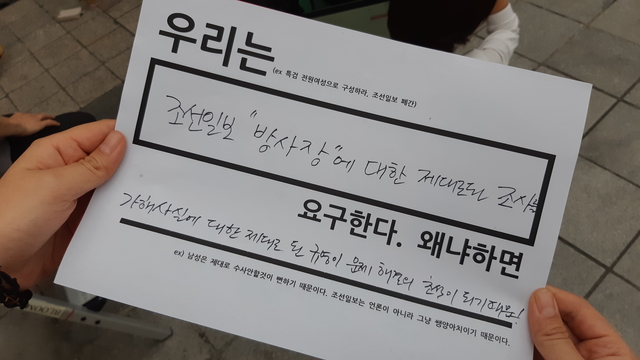 우리는
(ex 특검 전원여성으로 구성하라, 조선일보 폐간)
조선일보 "방사장"에 대한 제대로된 조사를
요구한다. 왜냐하면
가해사실에 대한 제대로 된 규명이 문제 해결의 첫걸이 되기때문!
ex) 남성은 제대로 수사안할것이 뻔하기 때문이다. 조선일보는 언론이 아니라 그냥 쌩양아치이기 때문이다.